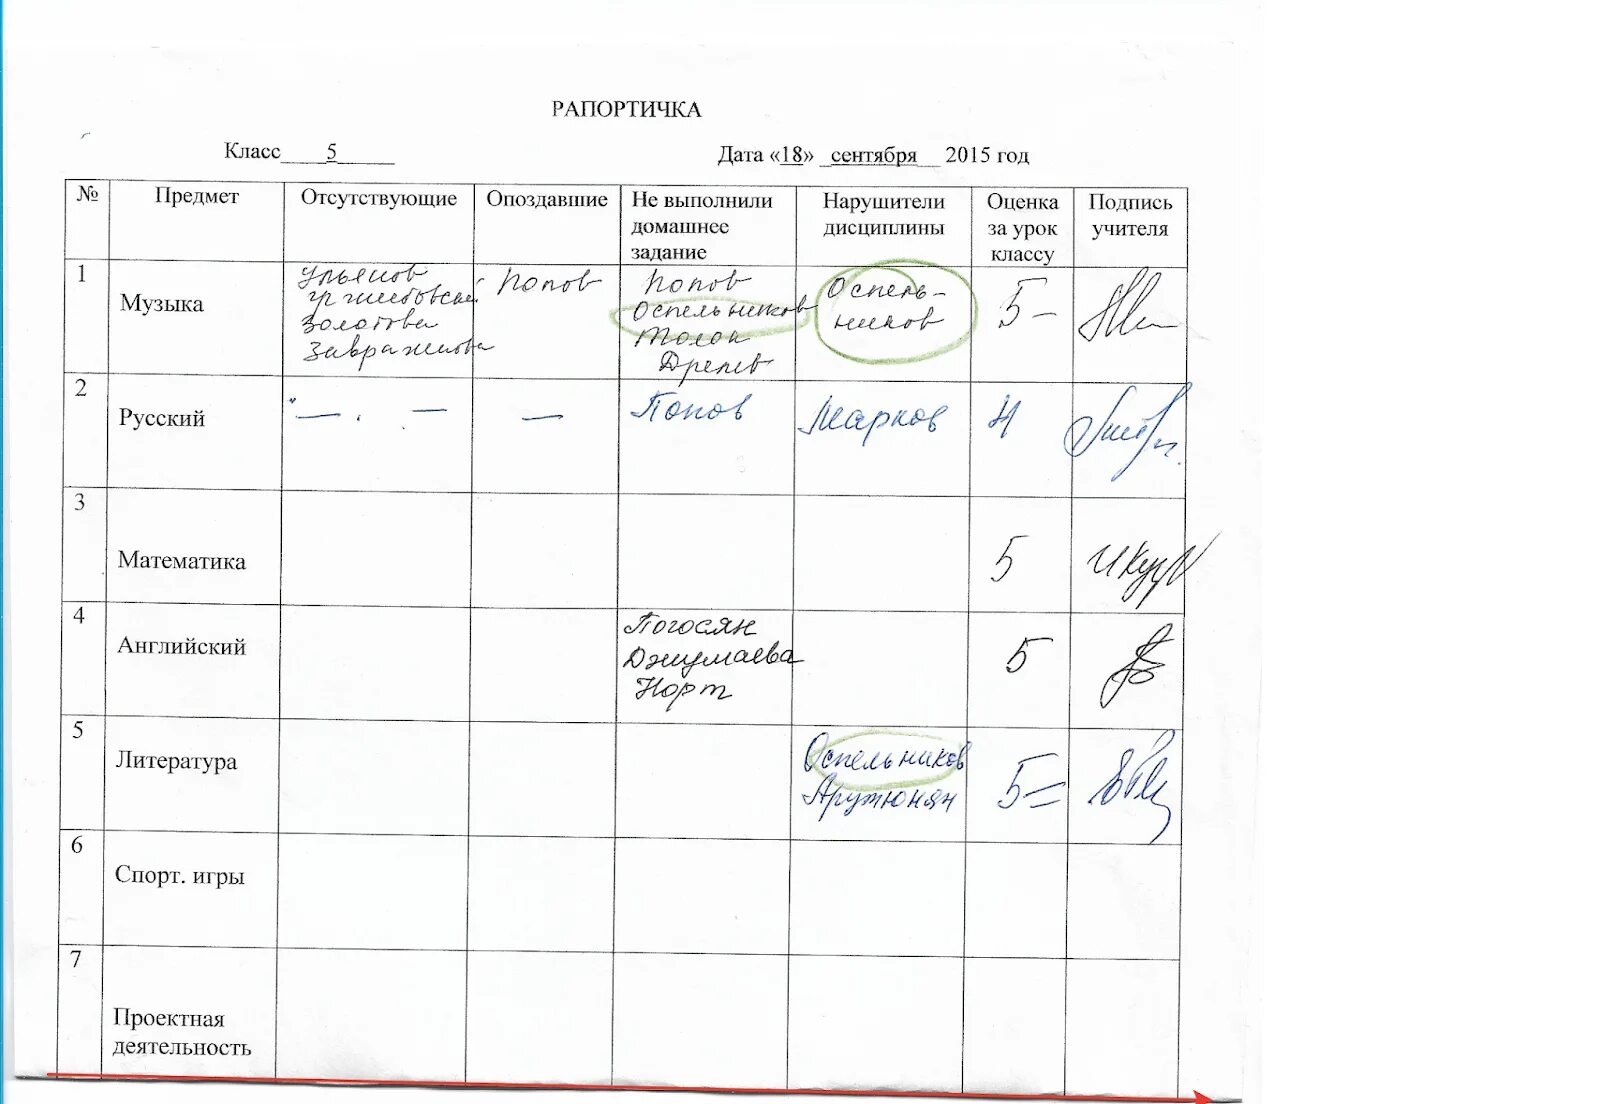 РАПОРТИЧКА
Класс 5 Дата «18» сентября 2015 год
№ Предмет Отсутствующие Опоздавшие Не выполнили домашнее задание Нарушители дисциплины Оценка за урок классу Подпись учителя
1 Музыка
Ульянов
Золотова
Попов
Попов
Оспельников
Дрепев
Оспель-
ников
5-
2 Русский
" — . — — Попов Марков 4
3 Математика 5
4 Английский
Погосян
Джумаева
Норт
5
5 Литература
Оспельников
Арутюнян
5=
6 Спорт. игры
7 Проектная
деятельность